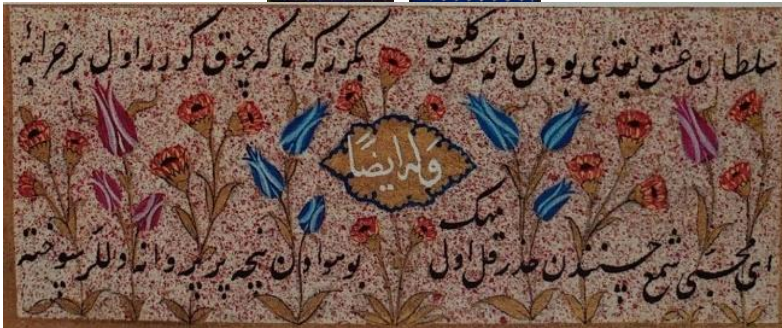 سلطان عشق یقدی بو دل خانه سن کلوب بکزر که باکه چوق کورر اول بر خرابه
وله ایضاً
ای محبی شمع حسنندن حذر قل اول مهک بو سوادن نیچه پر پروانه دللر سوخته